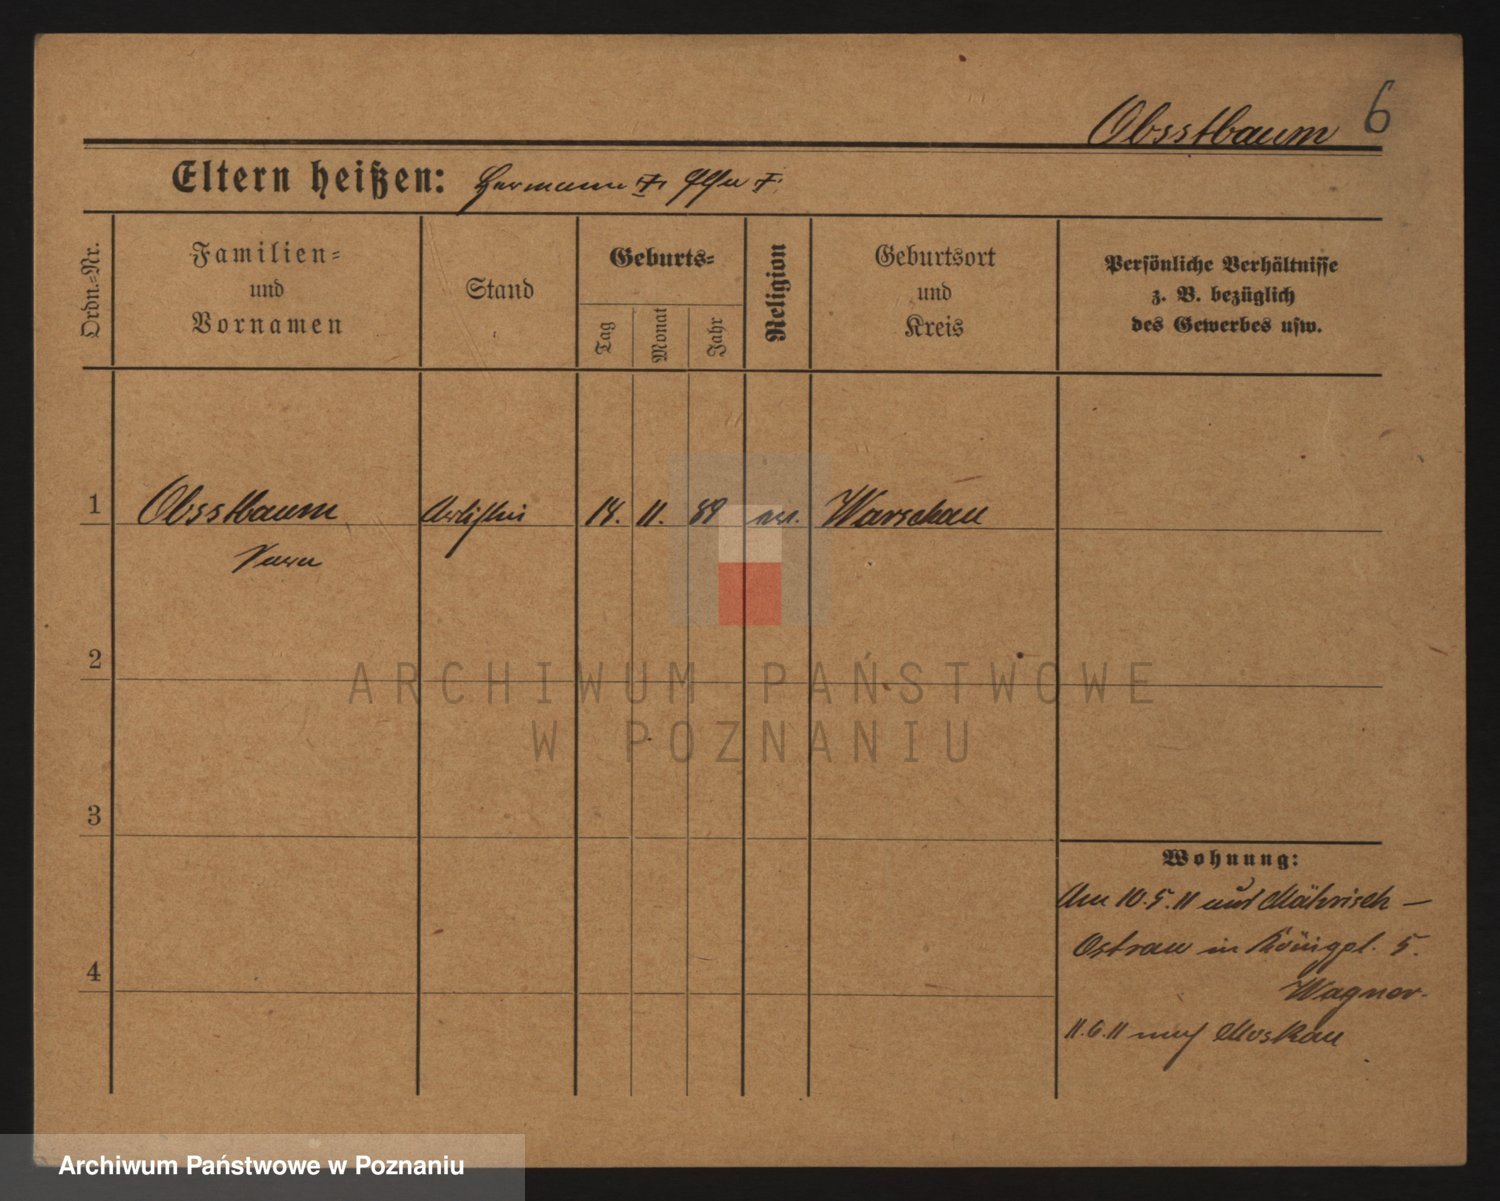 6
Obsstbaum
Eltern heißen: Hermann
Ordn.-Nr.
Familien-
und
Vornamen
Stand
Geburts-
Tag
Monat
Jahr
Religion
Geburtsort
und
Kreis
Persönliche Verhältnisse
z. B. bezüglich
des Gewerbes usw.
1 Obsstbaum Artistin 11. 89 Warschau
2
ARCHIWUM PAŃSTWOWE
W POZNANIU
3
Wohnung:
Am 10.5.11 aus Mährisch-
Ostrau in Königpl. 5.
Wagner.
4
11.6.11 nach Moskau
Archiwum Państwowe w Poznaniu